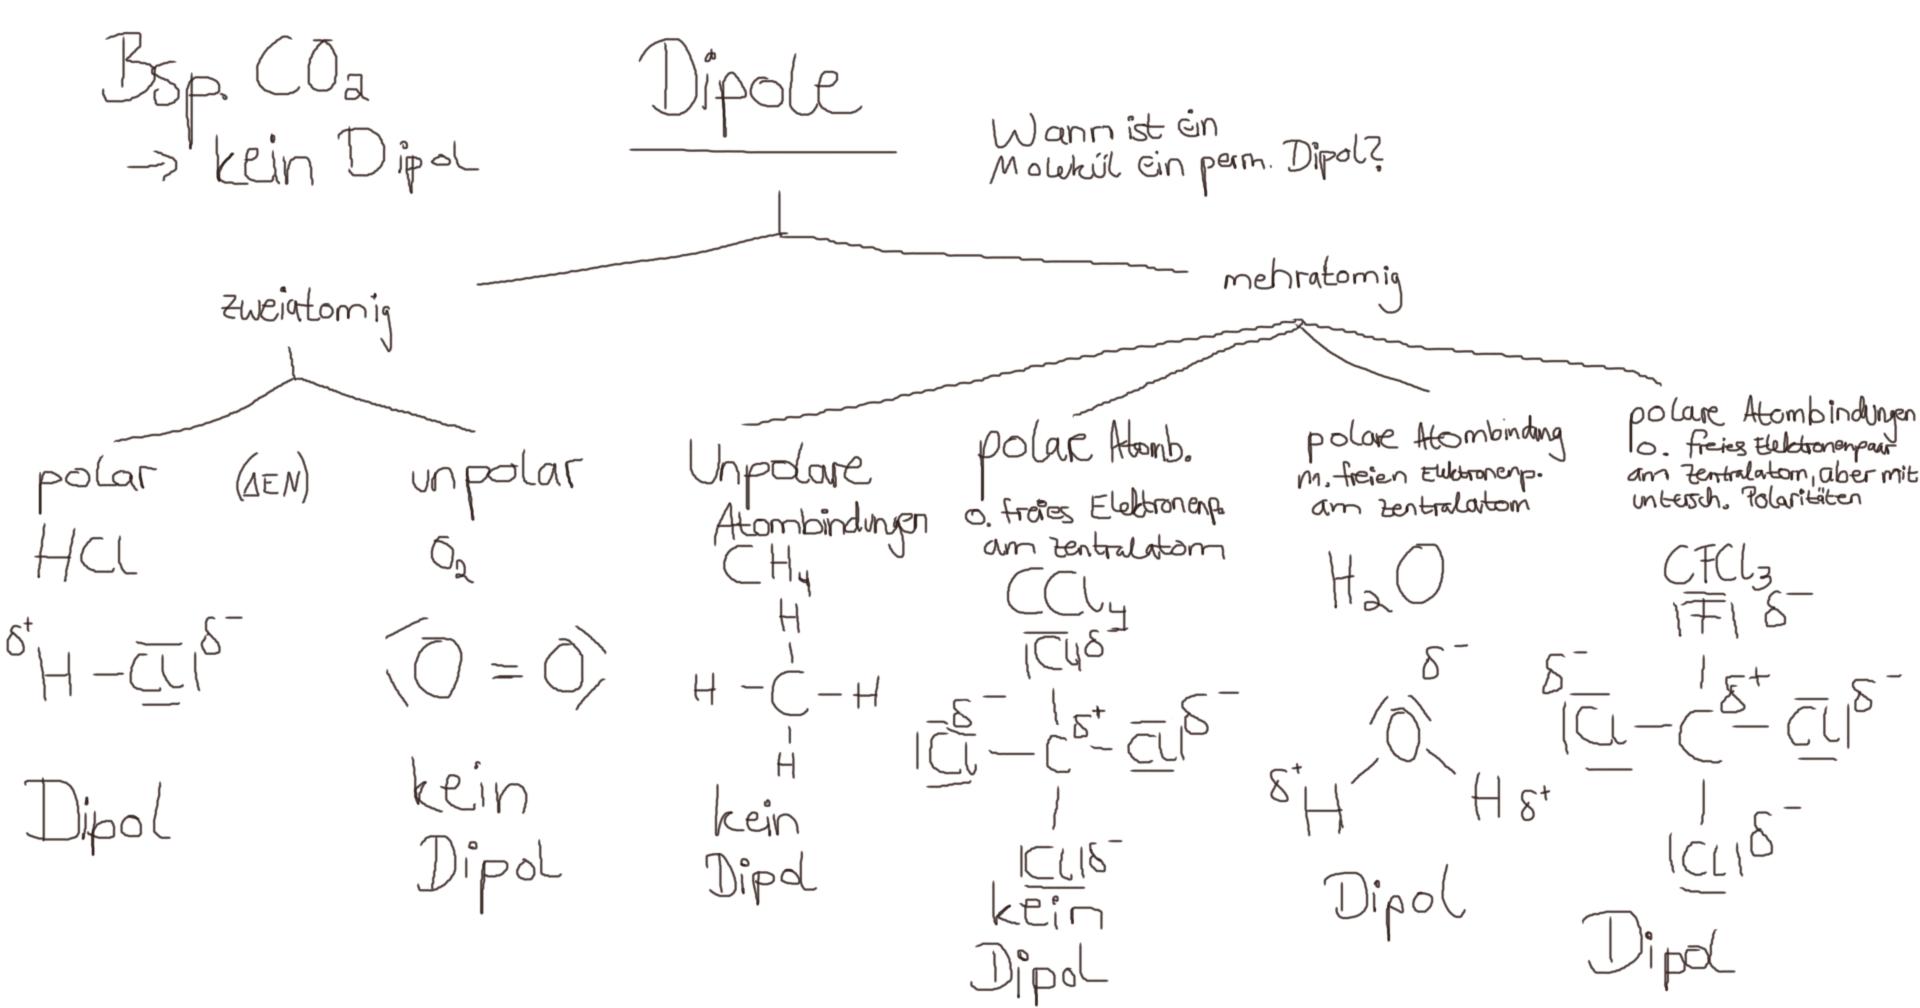 Bsp. CO2
→ kein Dipol
Dipole
Wann ist ein
Molekül ein perm. Dipol?
zweiatomig
mehratomig
polar
(ΔEN)
unpolar
HCl
O2
δ+ H – Cl δ-
O = O
Dipol
kein
Dipol
Unpolare
Atombindungen
CH4
H
H – C – H
H
kein
Dipol
polare Atomb.
o. freies Elektronenp.
am Zentralatom
CCl4
Cl δ-
δ- Cl – C δ+ – Cl δ-
Cl δ-
kein
Dipol
polare Atombindung
m. freien Elektronenp.
am Zentralatom
H2O
δ-
O
δ+ H H δ+
Dipol
polare Atombindungen
o. freies Elektronenpaar
am Zentralatom, aber mit
untersch. Polaritäten
CFCl3
F δ-
δ- Cl – C δ+ – Cl δ-
Cl δ-
Dipol